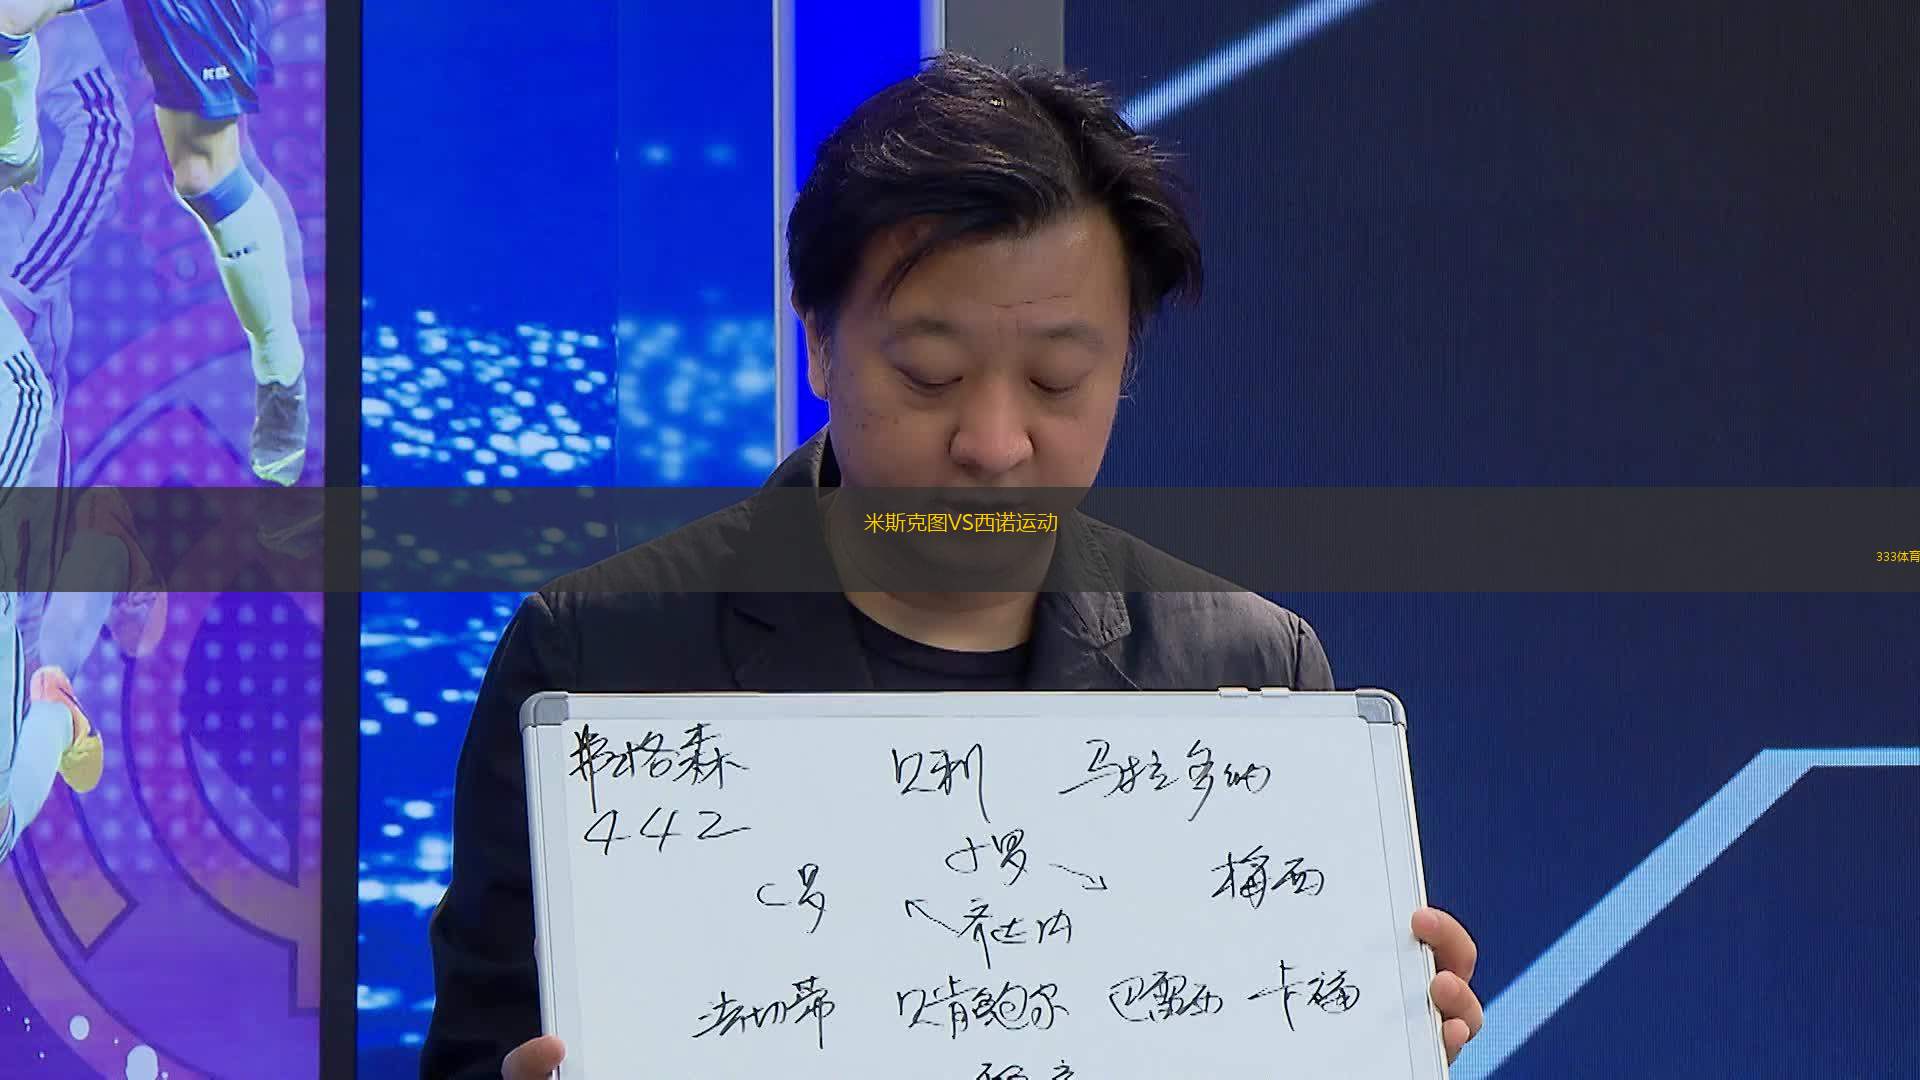 米斯克图VS西诺运动
333体育
弗格森 贝利 马拉多纳
442
小罗
C罗 梅西
齐达内
法切蒂 贝肯鲍尔 巴雷西 卡福